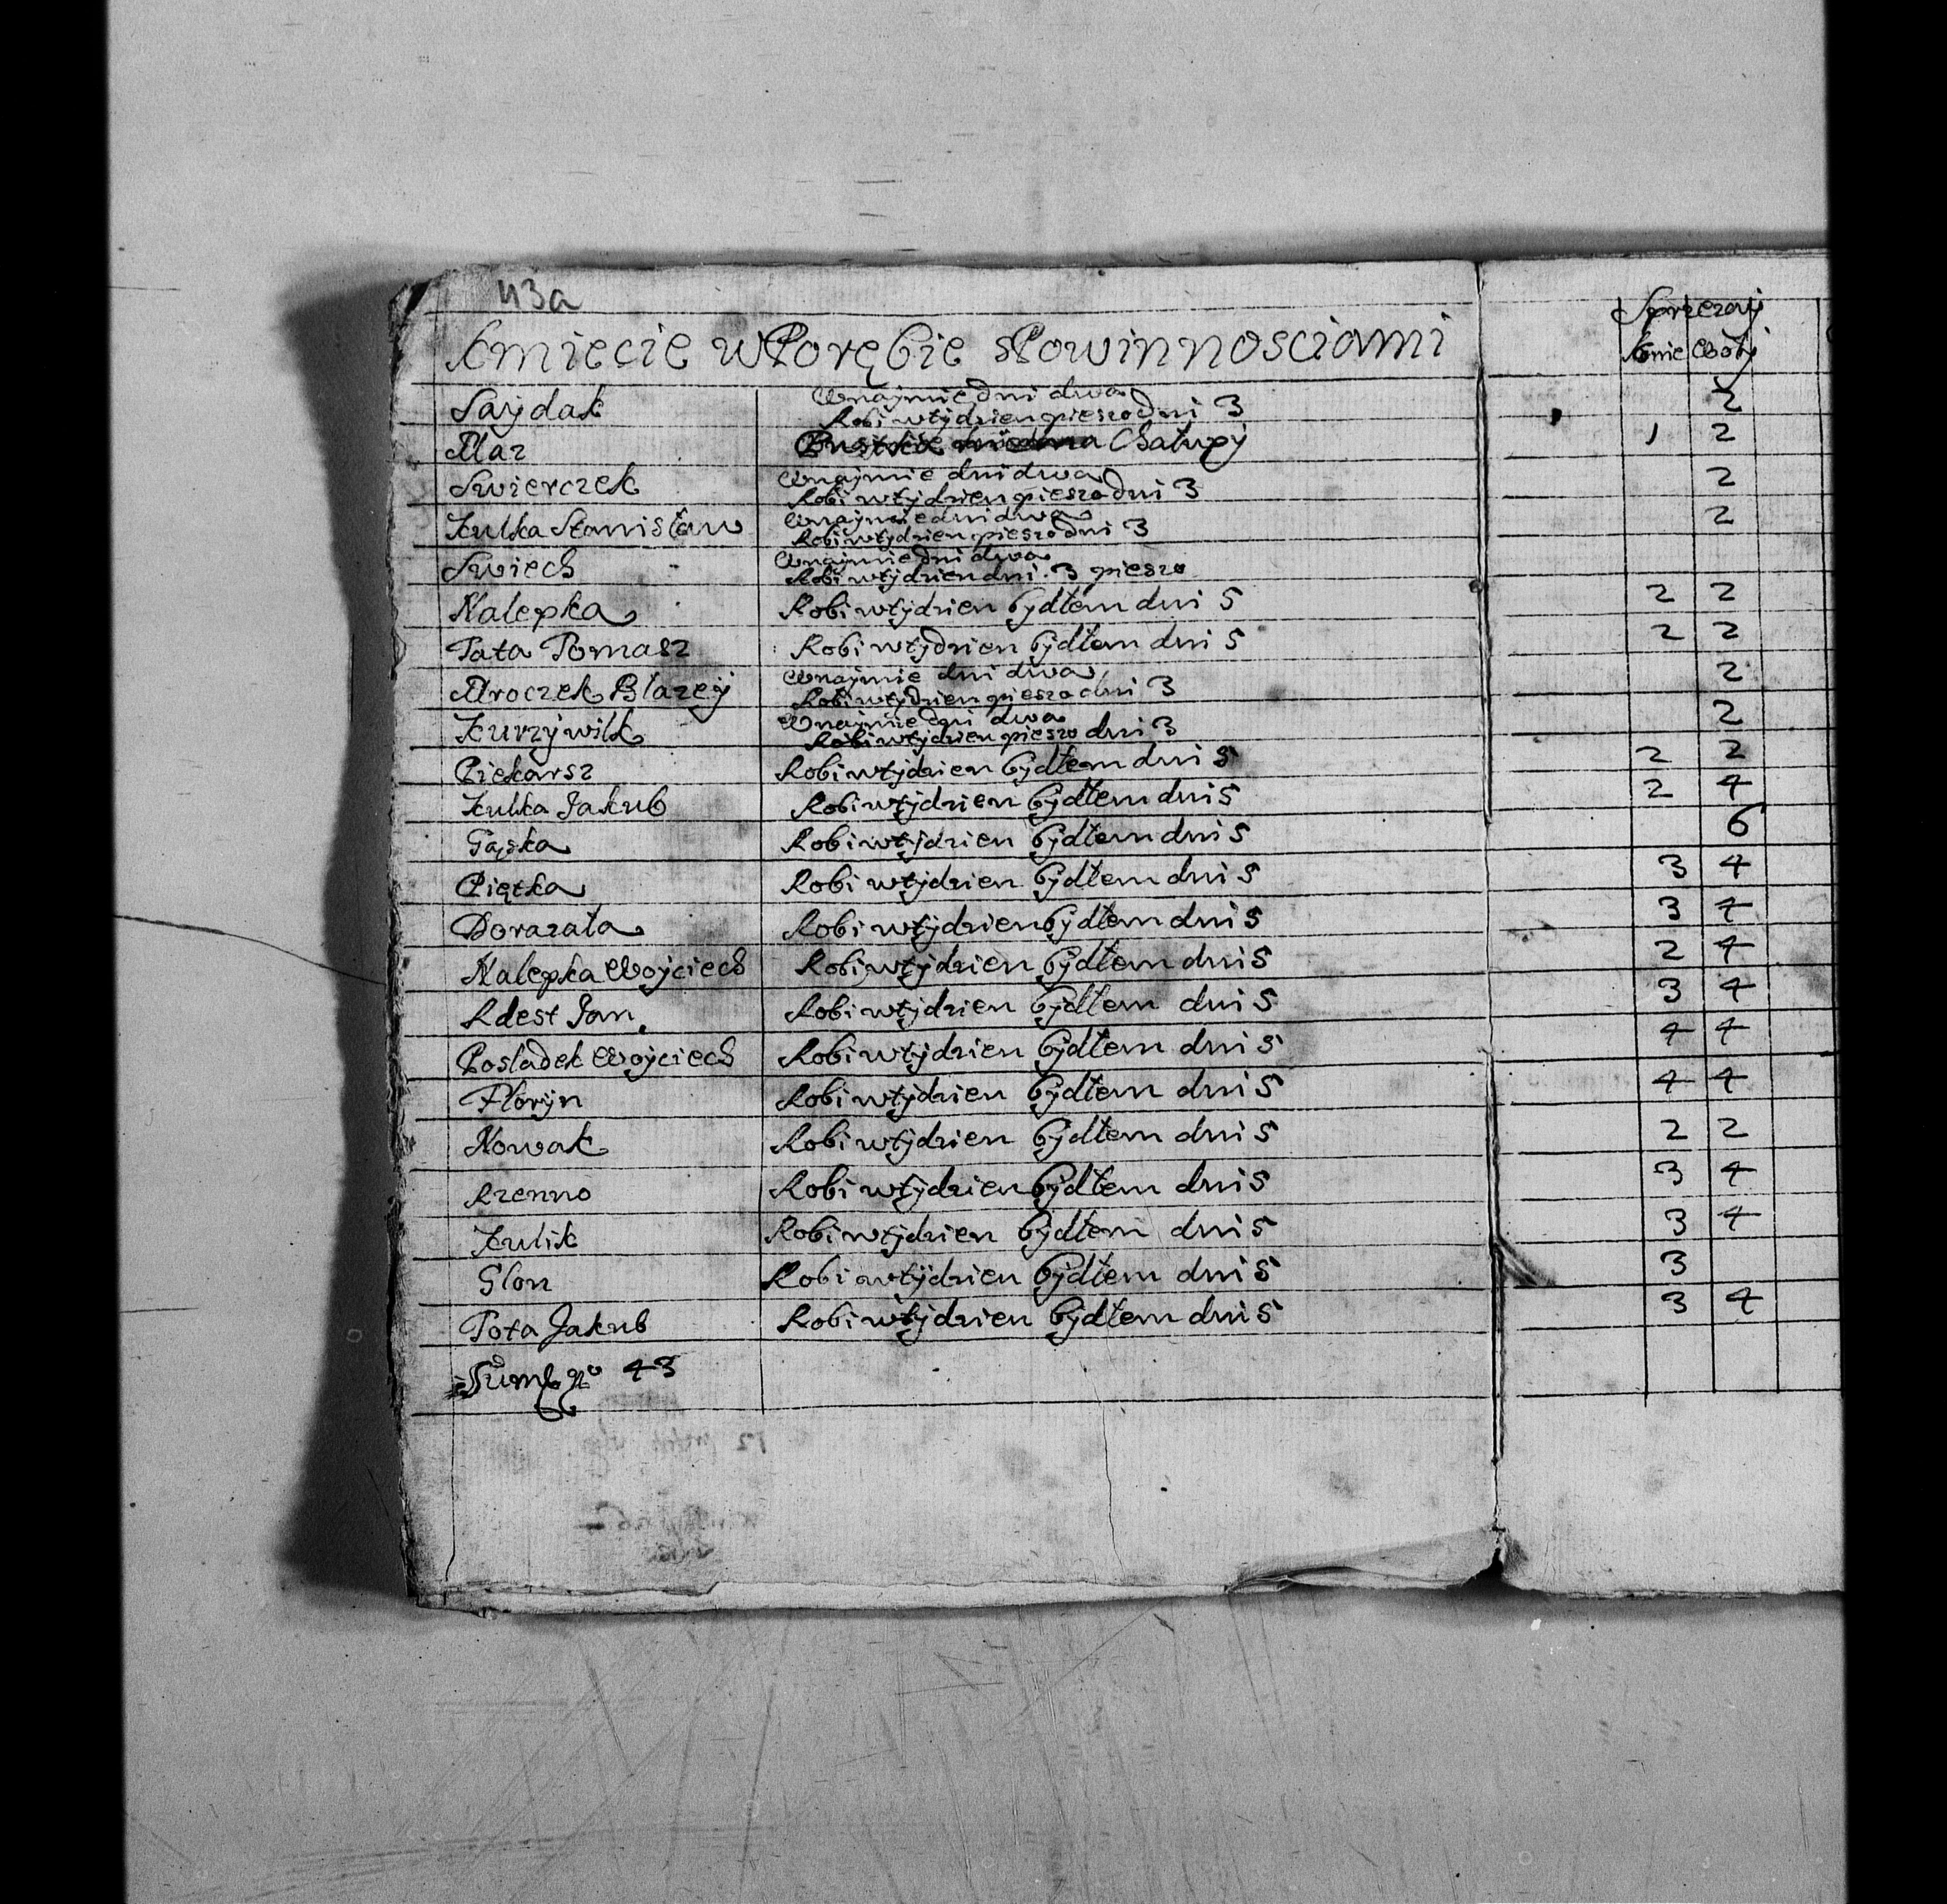 43a
Kmiecie w Porębie s Powinnosciami
Sprzezaij
Konie Wołÿ
Saÿdak Wnaÿmie dni dwa 2
Robi wtÿdzien pieszo dni 3
Maz Chałupÿ 1 2
Swierczek Wnaÿmie dni dwa 2
Robi wtÿdzien pieszo dni 3
Kulka Stanisław Wnaÿmie dni dwa 2
Robi wtÿdzien pieszo dni 3
Swiech Wnaÿmie dni dwa
Robi wtÿdzien dni 3 pieszo
Nalepka Robi wtÿdzien bÿdłem dni 5 2 2
Pata Tomasz Robi wtÿdzien bÿdłem dni 5 2 2
Mroczek Błazeÿ Wnaÿmie dni dwa 2
Robi wtÿdzien pieszo dni 3
Kurzÿwilk Wnaÿmie dni dwa 2
Robi wtÿdzien pieszo dni 3
Piekarsz Robi wtÿdzien bÿdłem dni 5 2 2
Kulka Jakub Robi wtÿdzien bÿdłem dni 5 2 4
Gąska Robi wtÿdzien bÿdłem dni 5 6
Piętka Robi wtÿdzien bÿdłem dni 5 3 4
Dorazała Robi wtÿdzien bÿdłem dni 5 3 4
Nalepka Woÿciech Robi wtÿdzien bÿdłem dni 5 2 4
Rdest Jan Robi wtÿdzien bÿdłem dni 5 3 4
Posladek Woÿciech Robi wtÿdzien bÿdłem dni 5 4 4
Florÿn Robi wtÿdzien bÿdłem dni 5 4 4
Nowak Robi wtÿdzien bÿdłem dni 5 2 2
Rzenno Robi wtÿdzien bÿdłem dni 5 3 4
Kulik Robi wtÿdzien bÿdłem dni 5 3 4
Glon Robi wtÿdzien bÿdłem dni 5 3
Pota Jakub Robi wtÿdzien bÿdłem dni 5 3 4
43